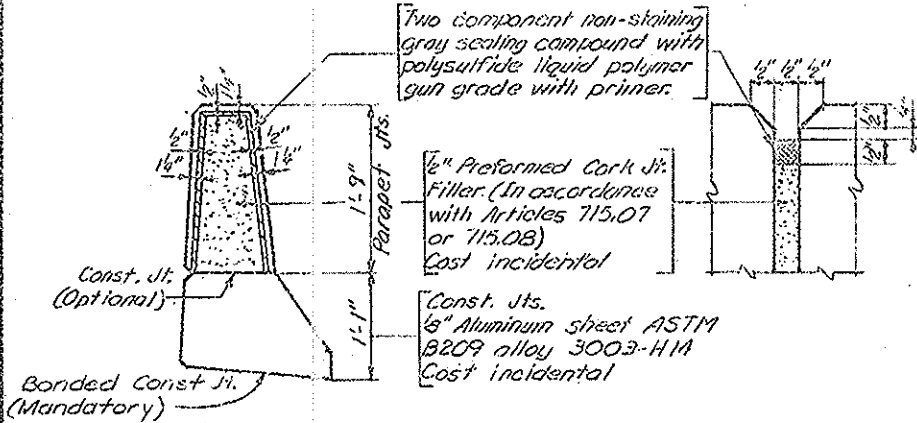 Two component non-staining
gray sealing compound with
polysulfide liquid polymer
gun grade with primer.
½" 1¼"
½" ½"
1¼" 1¼"
1'-9"
Parapet Jts.
½" Preformed Cork Jt.
Filler. (In accordance
with Articles 715.07
or 715.08)
Cost incidental
½" ½" ½"
½"
½"
Const. Jt.
(Optional)
1'-1"
Const. Jts.
⅛" Aluminum sheet ASTM
B209 alloy 3003-H14
Cost incidental
Bonded Const Jt.
(Mandatory)